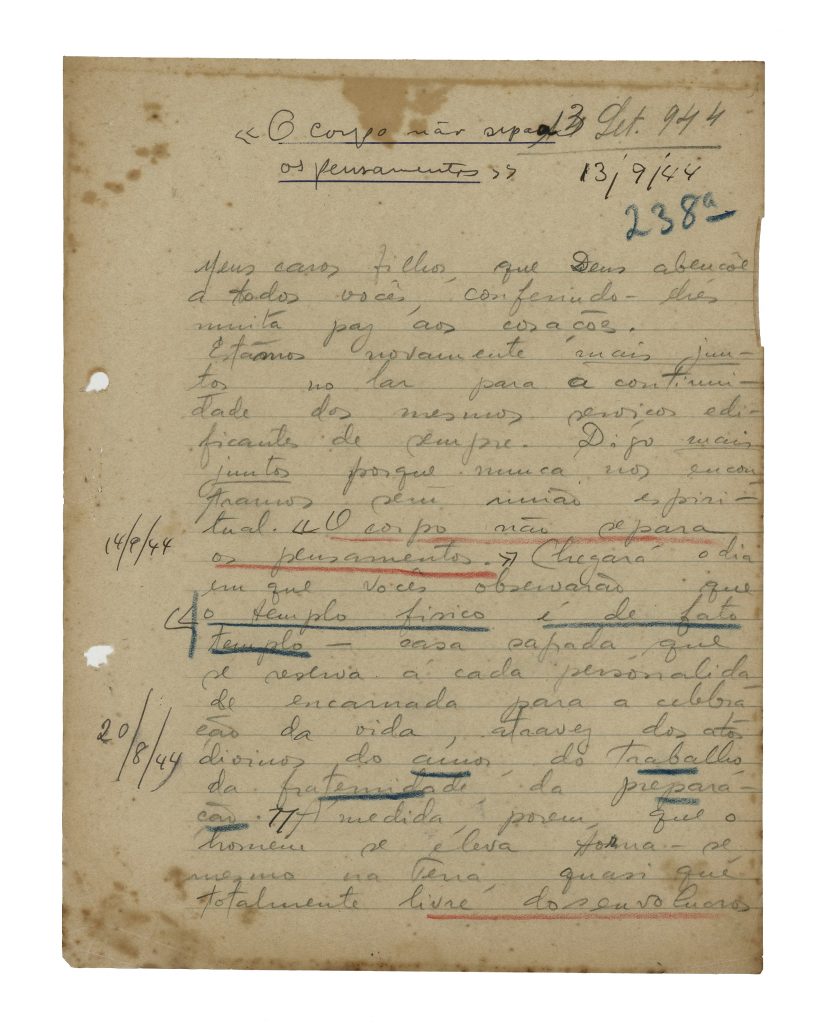 « O corpo não separa 13 Set. 944
os pensamentos »» 13/9/44
238ª
Meus caros filhos, que Deus abencôe
a todos vocês, conferindo-lhes
muita paz aos corações.
Estamos novamente mais jun-
tos no lar para a continui-
dade dos mesmos serviços edi-
ficantes de sempre. Digo mais
juntos porque nunca nos encon
tramos sem união espiri-
tual. « O corpo não separa
14/9/44 os pensamentos. » Chegará o dia
em que vocês observarão que
« o templo fisico é de fato
templo - casa sagrada que
se reserva á cada personalida
de encarnada para a celebra
ção da vida, atravez dos atos
20/8/44 divinos do amor, do trabalho
da fraternidade da prepará-
ção. » A medida porem que o
homem se éleva torna-se
mesmo na Terra, quasi que
totalmente livre dos envolucros